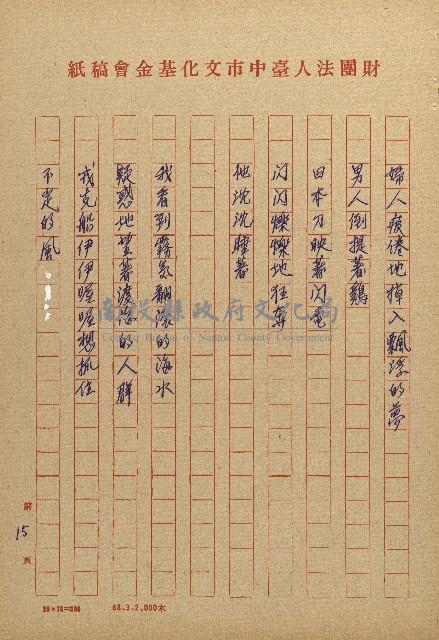 財團法人臺中市文化基金會稿紙
婦人疲倦地掉入飄浮的夢
男人倒提著鷄
日本刀映著閃電
閃閃爍爍地狂奔
他沈沈睡著
我看到霧氣翻滾的海水
疑惑地望著漂浮的人群
戎克船伊伊喔喔想抓住
不定的風
南投縣政府文化局
Cultural Bureau of Nantou County Government
第15頁
20×10=200
68.3.2,000本